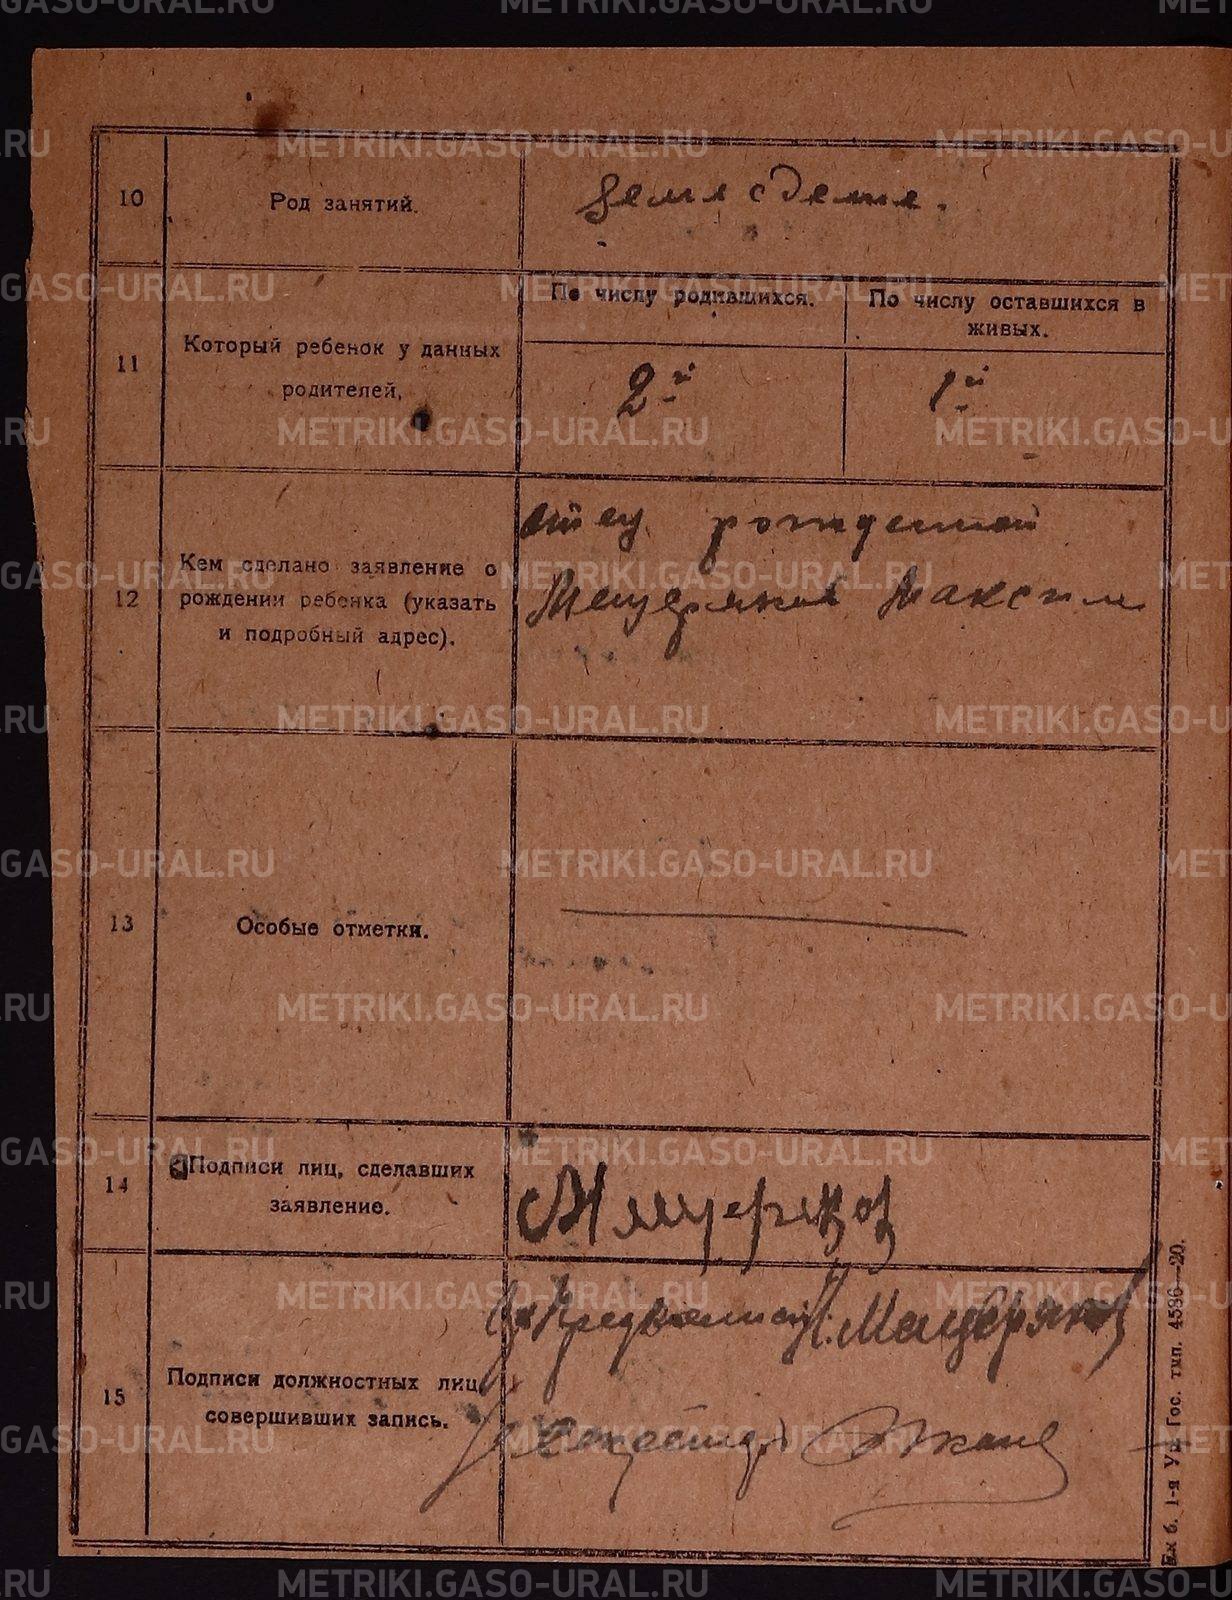 METRIKI.GASO-URAL.RU
10
Род занятий.
11
Который ребенок у данных
родителей,
По числу родившихся.
По числу оставшихся в
живых.
2й
1й
12
Кем сделано заявление о
рождении ребенка (указать
и подробный адрес).
отец рожденной
Мещеряков Максим
13
Особые отметки.
14
Подписи лиц, сделавших
заявление.
15
Подписи должностных лиц
совершивших запись.
Мещеряков
Секретарь
1-я Гос. тип. 4586—20.